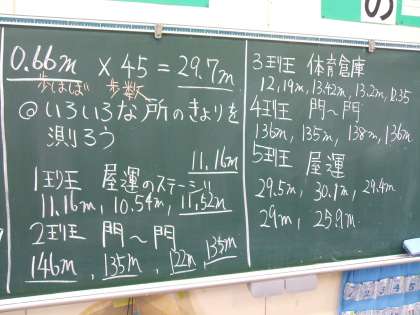 の
0.66m × 45 = 29.7m
歩はば 歩数
@ いろいろな所のきょりを
測ろう
11.16m
1班 屋運のステージ
11.16m, 10.54m, 11.52m
2班 門〜門
146m, 135m, 122m, 135m
3班 体育倉庫
12.19m, 13.42m, 13.2m, 12.35
4班 門〜門
136m, 135m, 138m, 136m
5班 屋運
29.5m, 30.1m, 29.4m
29m, 25.9m